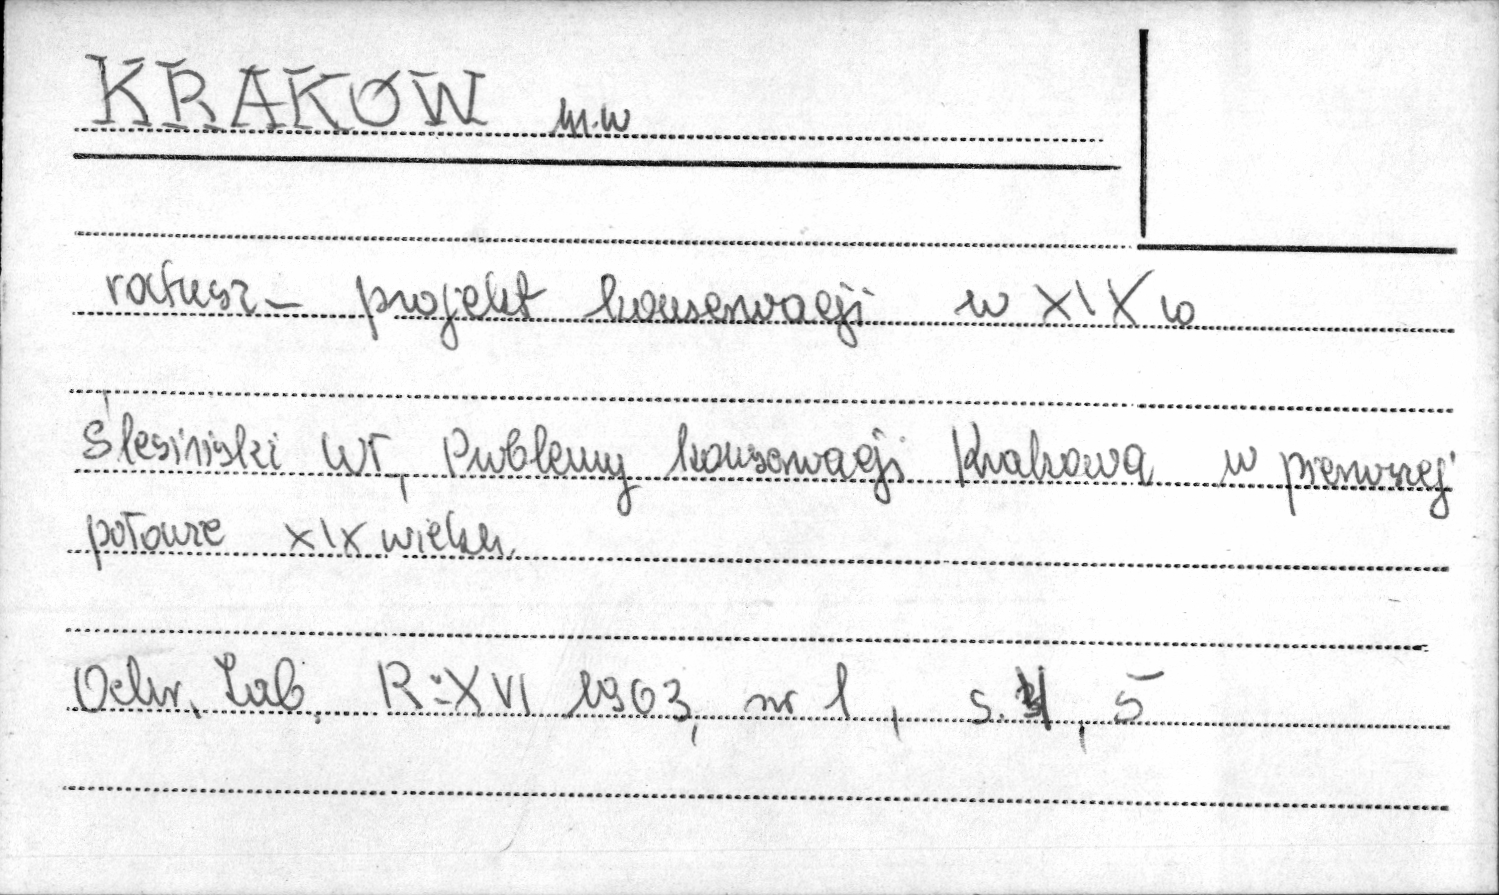 KRAKÓW m.w
ratusz – projekt konserwacji w XIX w
Ślesiński Wł, Problemy konserwacji Krakowa w pierwszej
połowie XIX wieku.
Ochr. Zab. R: XVI 1963, nr 1, s. 4, 5